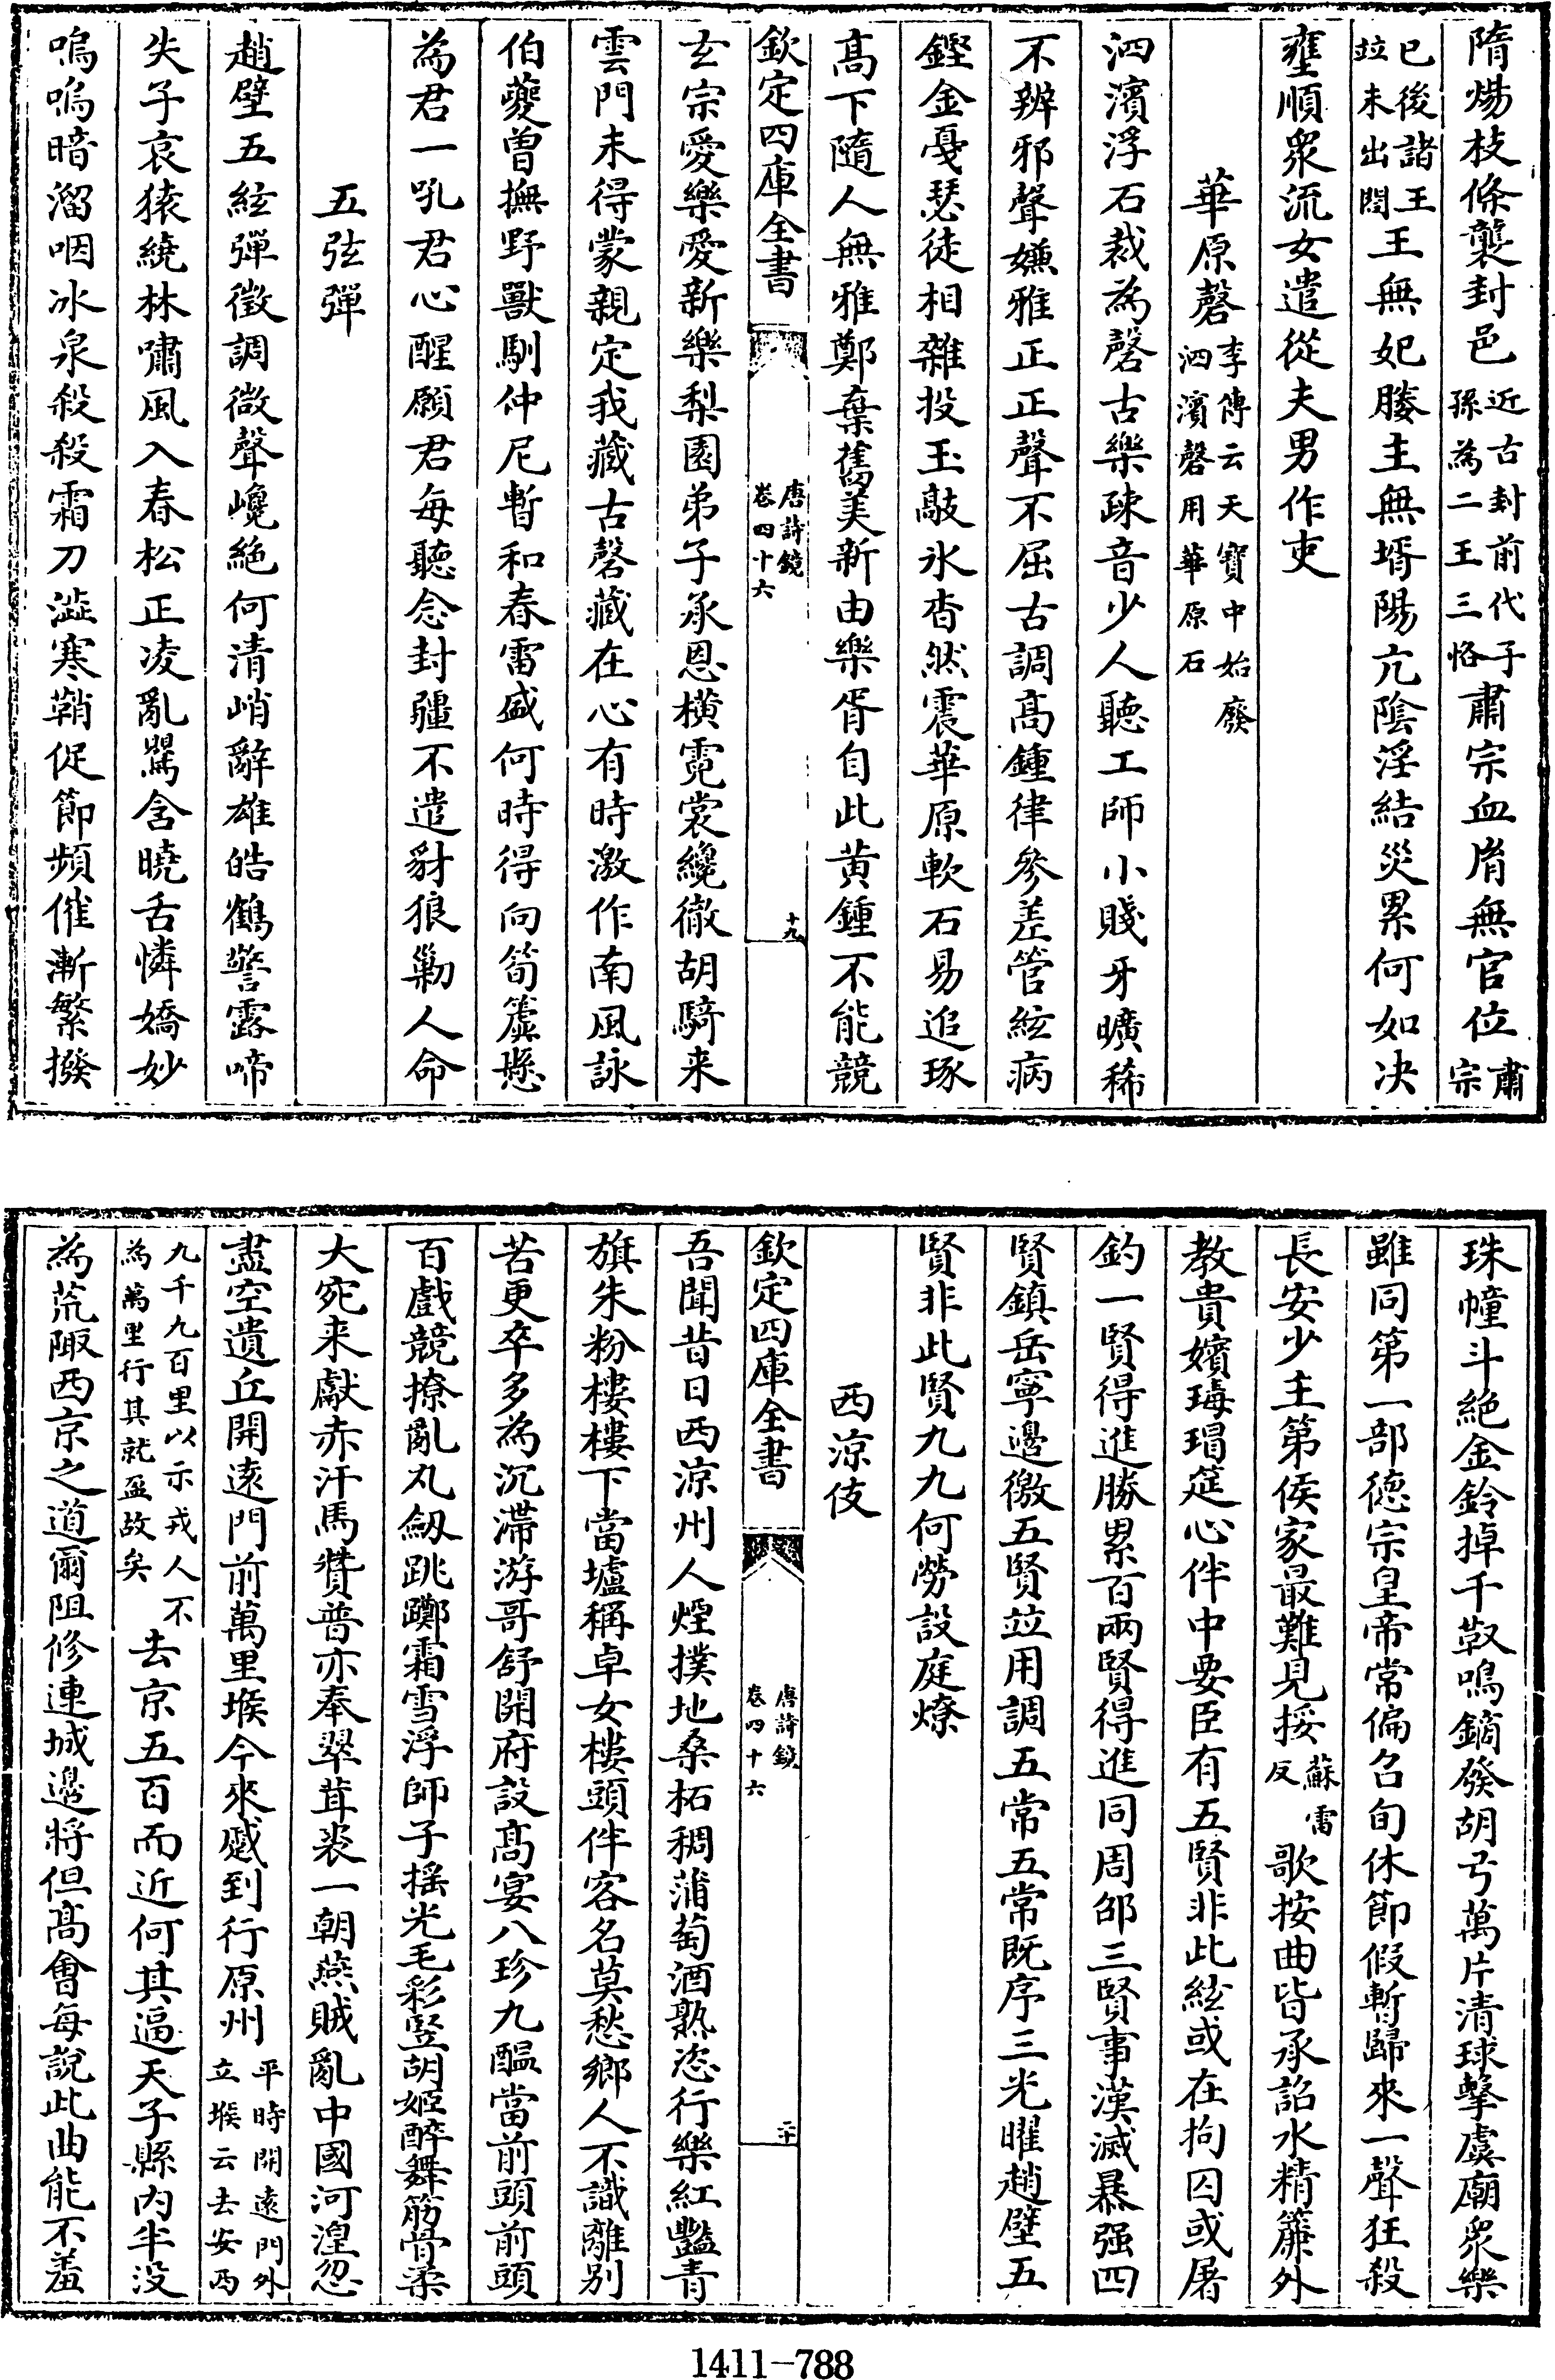 隋煬枝條襲封邑近古封前代子孫為二王三恪肅宗血脣無官位肅宗
已後諸王竝未出閤王無妃媵主無壻陽亢陰淫結災累何如決
壅順衆流女遣從夫男作吏
華原磬李傳云天寶中始廢泗濱磬用華原石
泗濱浮石裁為磬古樂疎音少人聽工師小賤牙曠稀
不辨邪聲嫌雅正正聲不屈古調高鍾律參差管絃病
鏗金戛瑟徒相雜投玉敲氷杳然震華原軟石易追琢
高下隨人無雅鄭棄舊美新由樂胥自此黄鍾不能競
欽定四庫全書
唐詩鏡
卷四十六
十九
玄宗愛樂愛新樂梨園弟子承恩横霓裳纔徹胡騎来
雲門未得蒙親定我藏古磬藏在心有時激作南風詠
伯夔曾撫野獸馴仲尼暫和春雷盛何時得向筍簴懸
為君一吼君心醒願君每聽念封疆不遣豺狼剿人命
五弦彈
趙璧五絃彈徵調徵聲巉絶何清峭辭雄皓鶴警露啼
失子哀猿繞林嘯風入春松正凌亂鶯含曉舌憐嬌妙
嗚嗚暗溜咽冰泉殺殺霜刀澁寒鞘促節頻催漸繁撥
珠幢斗絶金鈴掉千靫鳴鏑發胡弓萬片清球擊虞廟衆樂
雖同第一部德宗皇帝常偏召旬休節假暫歸來一聲狂殺
長安少主第侯家最難見挼蘇雷反歌按曲皆承詔水精簾外
教貴嬪瑇瑁筵心伴中要臣有五賢非此絃或在拘囚或屠
釣一賢得進勝累百兩賢得進同周邵三賢事漢滅暴强四
賢鎮岳寧邊徼五賢竝用調五常五常既序三光曜趙璧五
賢非此賢九九何勞設庭燎
西凉伎
欽定四庫全書
唐詩鏡
卷四十六
二十
吾聞昔日西凉州人煙撲地桑柘稠蒲萄酒熟恣行樂紅豔青
旗朱粉樓樓下當壚稱卓女樓頭伴客名莫愁鄉人不識離别
苦更卒多為沉滯游哥舒開府設高宴八珍九醖當前頭前頭
百戲競撩亂丸劒跳躑霜雪浮師子摇光毛彩竪胡姬醉舞筋骨柔
大宛来獻赤汗馬贊普亦奉翠茸裘一朝燕賊亂中國河湟忽
盡空遺丘開遠門前萬里堠今來蹙到行原州平時開遠門外立堠云去安西
九千九百里以示戎人不為萬里行其就盈故矣去京五百而近何其逼天子縣内半没
為荒陬西京之道爾阻修連城邊將但高會每說此曲能不羞
1411-788